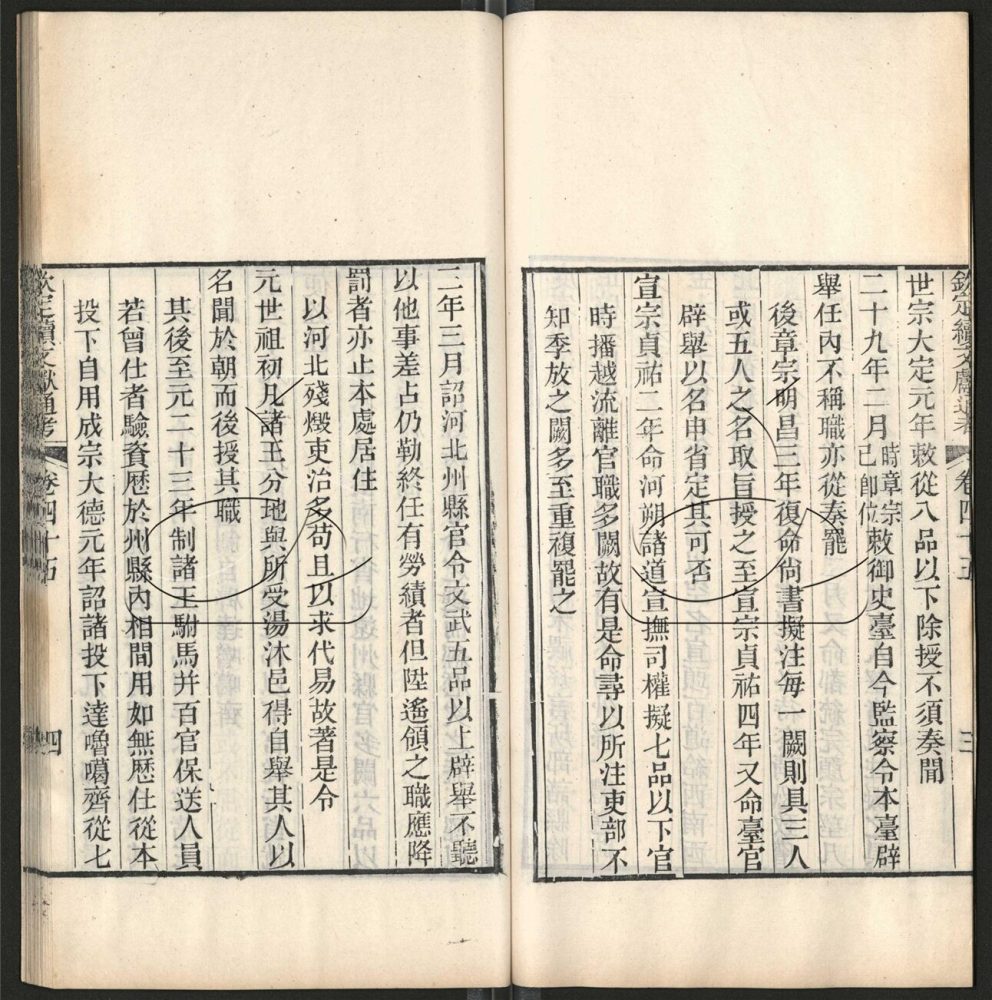 欽定續文獻通考 卷四十五 三
世宗大定元年敕從八品以下除授不須奏聞
二十九年二月時章宗已卽位敕御史臺自今監察令本臺辟
舉任內不稱職亦從奏罷
後章宗明昌三年復命尙書擬注每一闕則具三人
或五人之名取旨授之至宣宗貞祐四年又命臺官
辟舉以名申省定其可否
宣宗貞祐二年命河朔諸道宣撫司權擬七品以下官
時播越流離官職多闕故有是命尋以所注吏部不
知季放之闕多至重複罷之
三年三月詔河北州縣官令文武五品以上辟舉不聽
以他事差占仍勒終任有勞績者但陞遙領之職應降
罰者亦止本處居住
以河北殘燬吏治多苟且以求代易故著是令
元世祖初凡諸王分地與所受湯沐邑得自舉其人以
名聞於朝而後授其職
其後至元二十三年制諸王駙馬并百官保送人員
若曾仕者驗資歷於州縣內相間用如無歷仕從本
投下自用成宗大德元年詔諸投下達嚕噶齊從七
欽定續文獻通考 卷四十五 四